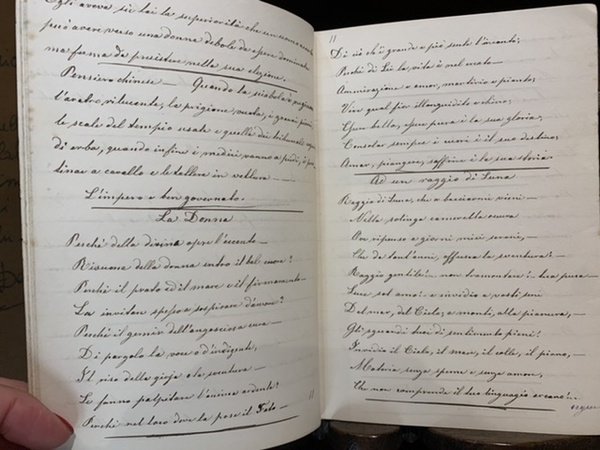 Egli aveva su lei la superiorità che un uomo
può avere verso una donna debole da essere dominata
ma forma da
Pensiero chinese — Quando la sciabola è rugginosa
l'aratro rilucente, le prigioni vuote, e granai pieni
le scale del tempio usate e quelle dei tribunali
di erba, quando infine i medici vanno a piedi, i
a cavallo e le lettere in vetture —
L'impero è ben governato.
La Donna
Perchè della divina opra l'accento —
Risuona della donna entro il bel cuore?
Perchè il prato ed il mare e il firmamento —
La invitan spesso a sospirar d'amore?
Perchè il gemer dell'angosciosa
Di pargolo la voce o d'indigente,
Il riso della gioja e la sventura —
Le fanno palpitare l'anima ardente?
Perchè nel loco dove la pose il Fato —
11
11
Di ciò ch'è grande e più sente l'incanto;
Perchè di Lei la vita è nel creato —
Ammirazione e amor, martirio e pianto;
Vive qual fior illanguidito e chino;
Pure bella, è pura è la sua gloria;
Consola sempre e muori è il suo destino;
Amar, piangere, soffrire è la sua storia
Ad un raggio di Luna
Raggio di Luna, che a baciarmi vieni —
Nella solinga cameretta oscura
Pei riposo e giorni miei sereni,
Che da tant'anni, offusca la sventura!
Raggio gentile! — non tramontare! — luce pura —
Luce sol amo! — e invidio e vasti seni
Del mar, del Cielo, e monti, alla pianura,
Gli sguardi tuoi di sentimento pieni!
Invidio il Cielo, il mare, il colle, il piano, —
Materia senza speme e senza amore,
Che non comprende il tuo linguaggio arcano! —